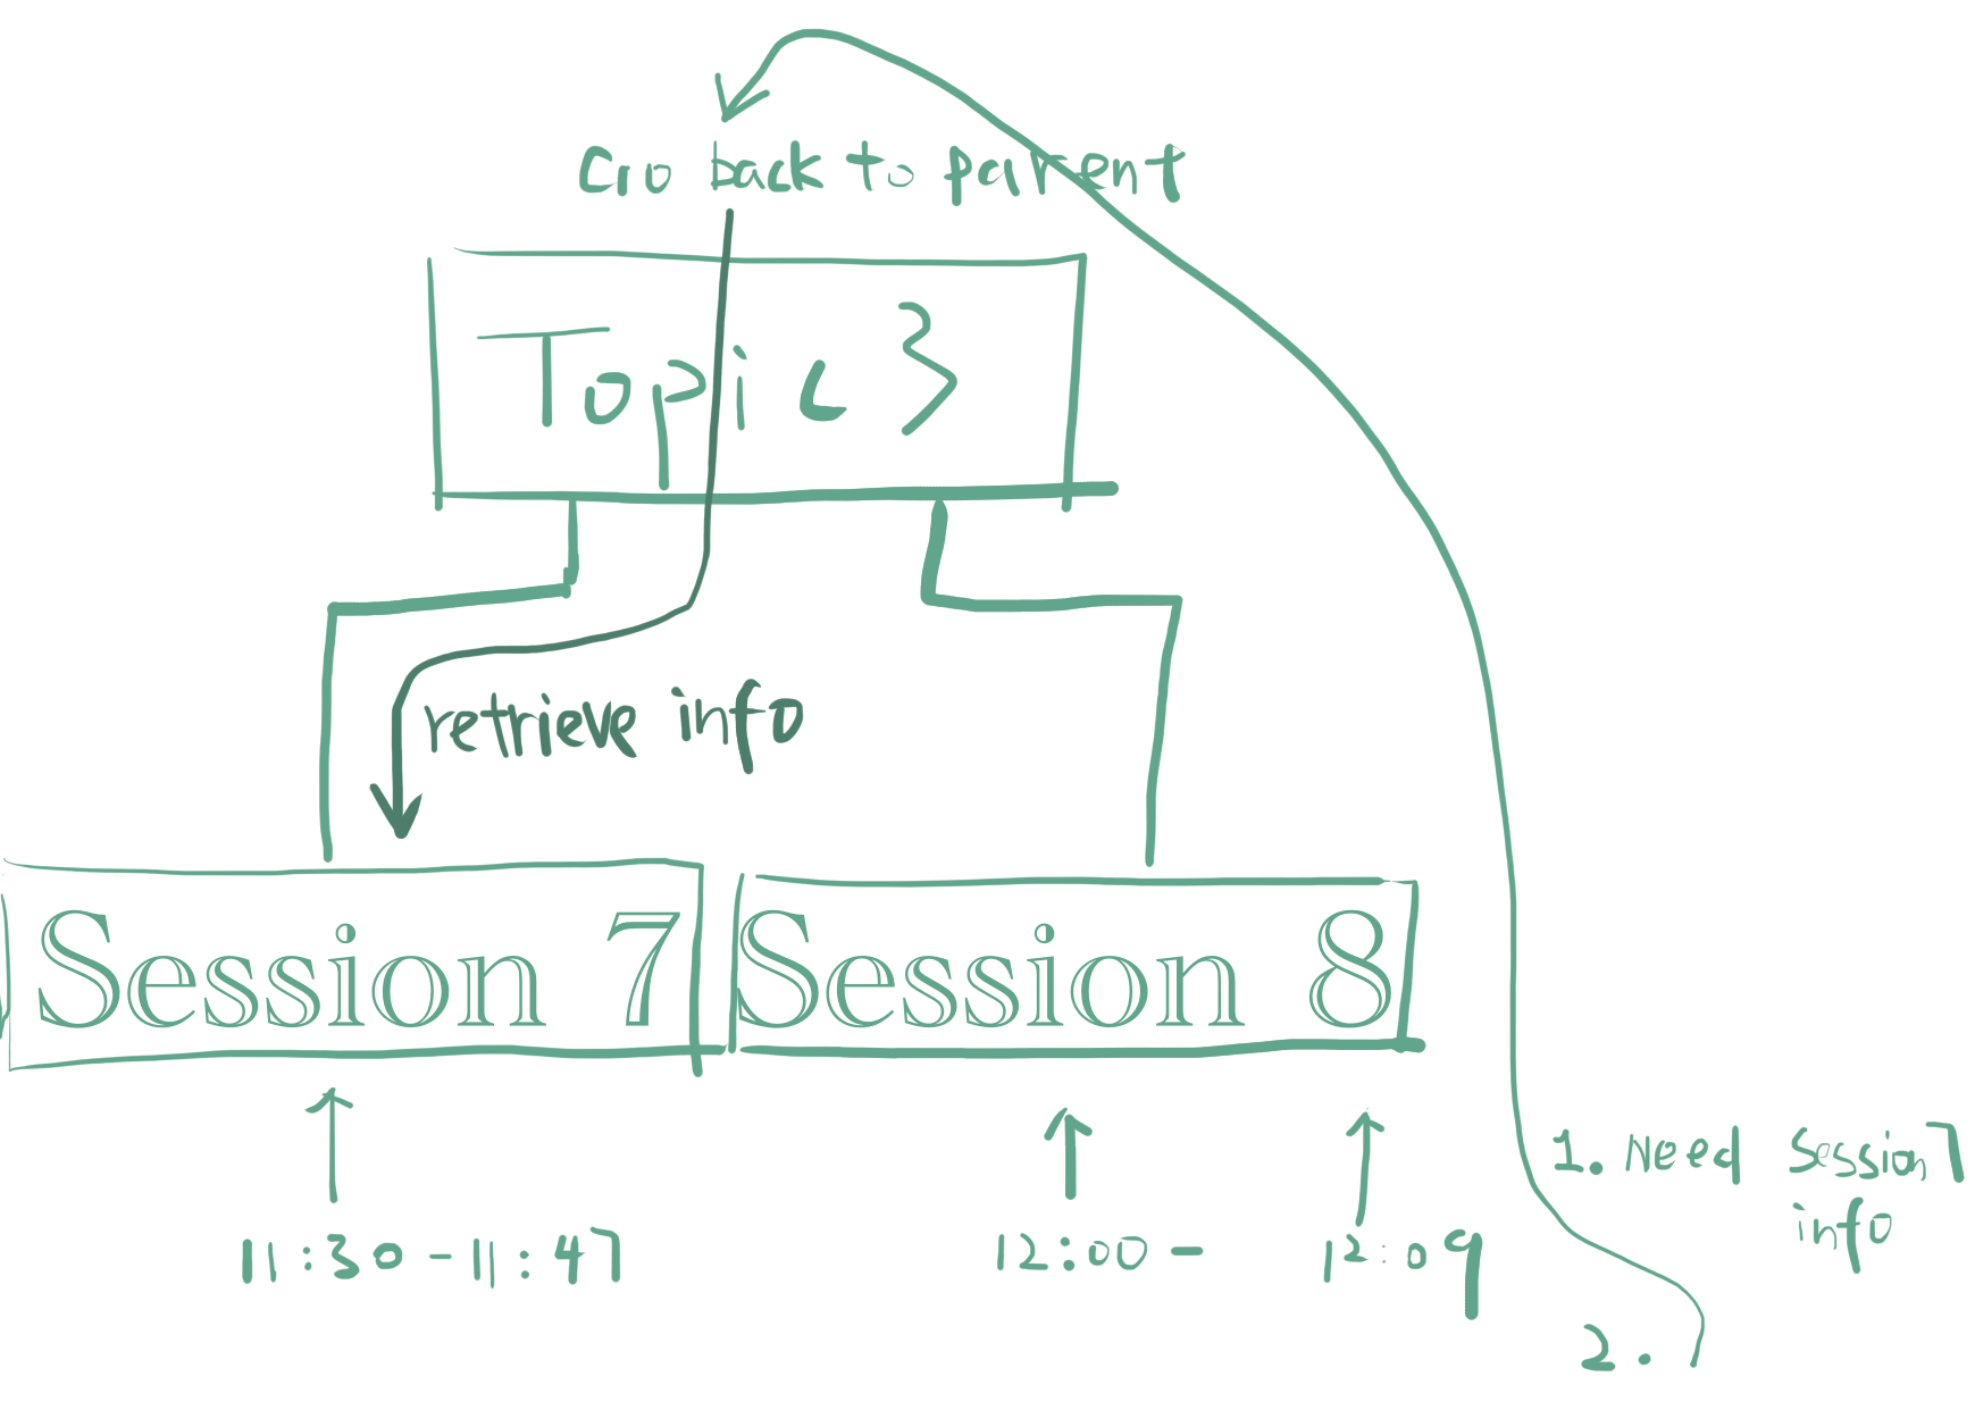 Go back to parent
Topic 3
retrieve info
Session 7 Session 8
11:30-11:47 12:00- 12:09
1. Need Session 7
info
2.